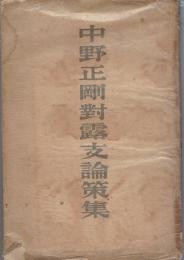 中野正剛對露支論策集